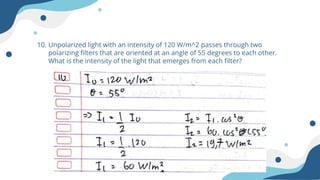 10. Unpolarized light with an intensity of 120 W/m^2 passes through two
polarizing filters that are oriented at an angle of 55 degrees to each other.
What is the intensity of the light that emerges from each filter?
10. I₀ = 120 W/m²
θ = 55°
=> I₁ = 1/2 I₀
I₁ = 1/2 . 120
I₁ = 60 W/m²
I₂ = I₁ . cos²θ
I₂ = 60. cos²(55°
I₂ = 19,7 W/m²